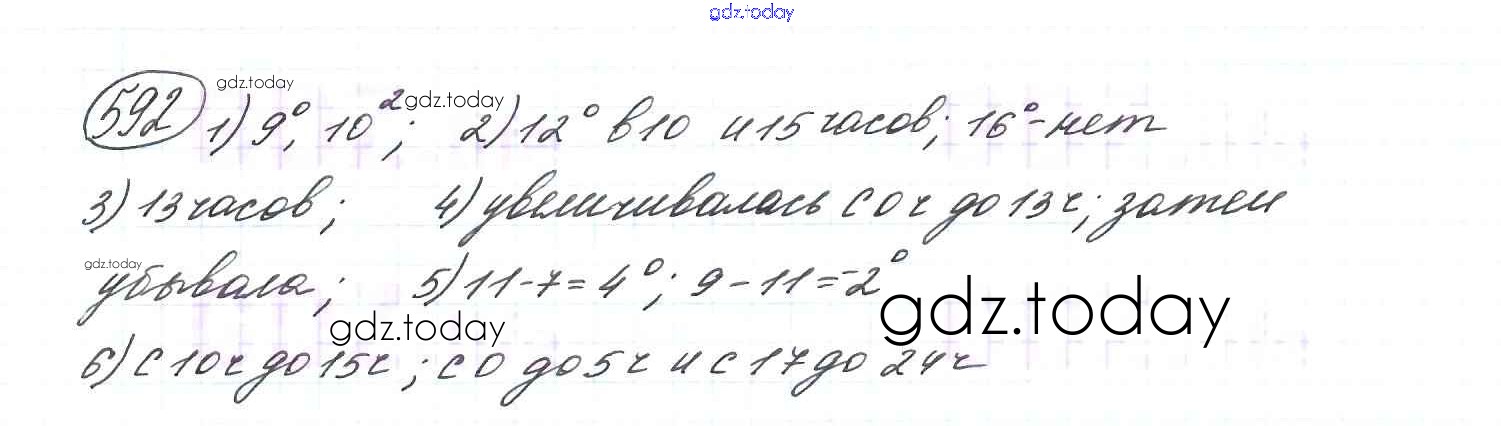 gdz.today
592 gdz.today 1) 9°, 10² gdz.today; 2) 12° в 10 и 15 часов; 16° - нет
3) 13 часов; 4) увеличивалась с 0 ч до 13 ч; затем
gdz.today убывала; 5) 11 - 7 = 4°; 9 - 11 = -2° gdz.today
gdz.today
6) с 10 ч до 15 ч; с 0 до 5 ч и с 17 до 24 ч